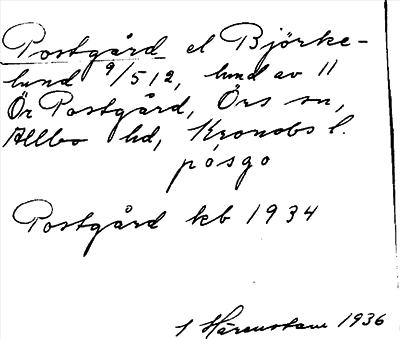 Postgård el Björke-
lund 9/512, lund av 11
Ör Postgård, Örs sn,
Allbo hd, Kronobs l.
pósgo
Postgård kb 1934
1 Härenstam 1936